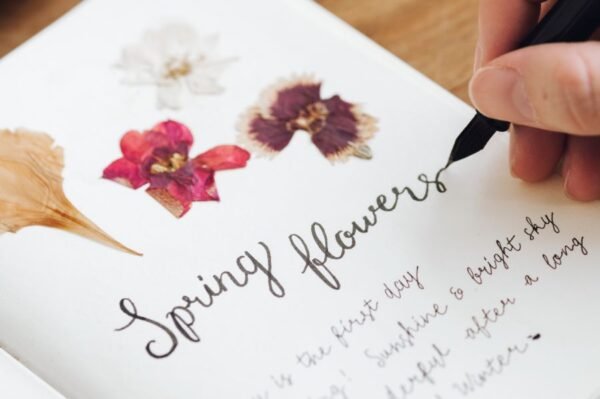 Spring flowers
is the first day
Sunshine & bright sky
after a long
Winter